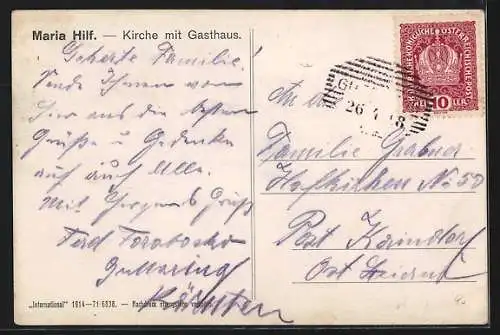 Maria Hilf. — Kirche mit Gasthaus.
Geherte Familie!
Sende Ihnen von
hier aus die besten
Grüße u Gedenken
auf auch Alle.
Mit Herzens Gruß
Ferd
Guttaring
Kärnten
„International" 1914—71·6838. — Nachdruck strengstens verboten.
KAISERLICHE KÖNIGLICHE ÖSTERREICHISCHE POST
10
HELLER
26
18
An die
Familie Grabner
Hofkirchen No 50
Post Kaindorf
Ost Steierm